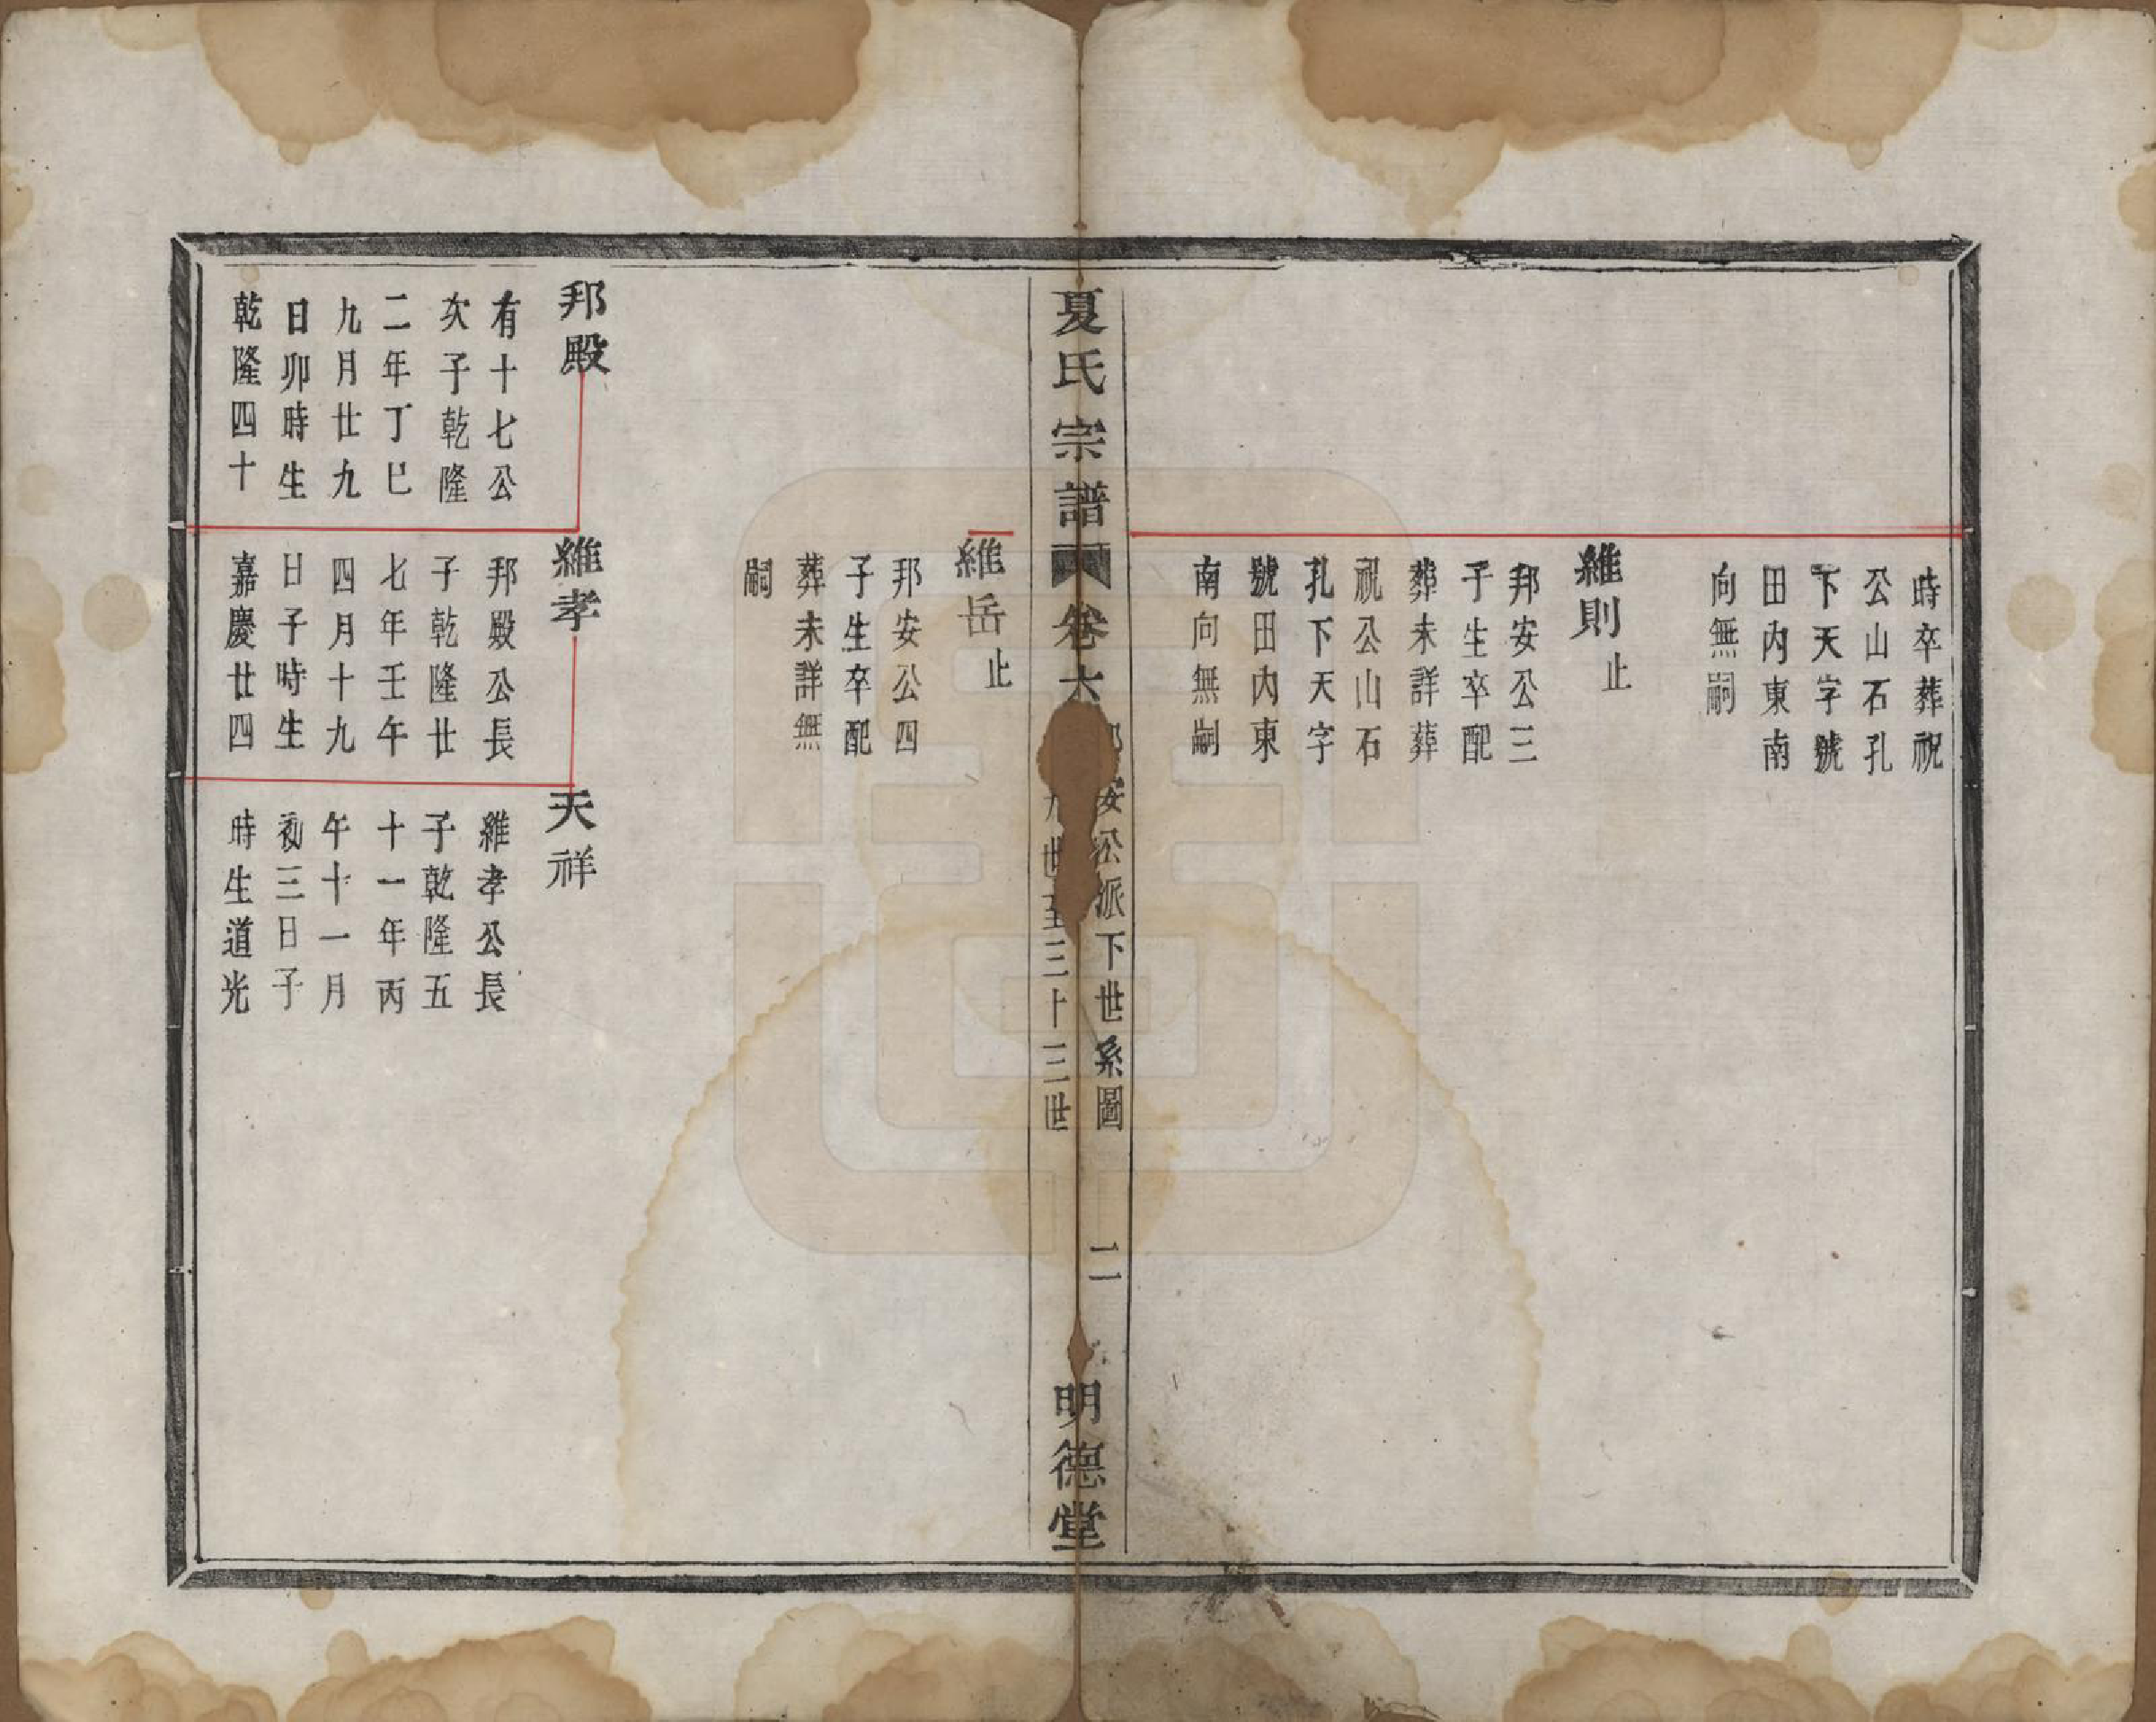 時卒葬祝
公山石孔
下天字號
田內東南
向無嗣
維則止
邦安公三
子生卒配
葬未詳葬
祝公山石
孔下天字
號田內東
南向無嗣
夏氏宗譜
卷六
安公派下世系圖
世至三十三世
二
明德堂
維岳止
邦安公四
子生卒配
葬未詳無
嗣
邦殿
有十七公
次子乾隆
二年丁巳
九月廿九
日卯時生
乾隆四十
維孝
邦殿公長
子乾隆廿
七年壬午
四月十九
日子時生
嘉慶廿四
天祥
維孝公長
子乾隆五
十一年丙
午十一月
初三日子
時生道光